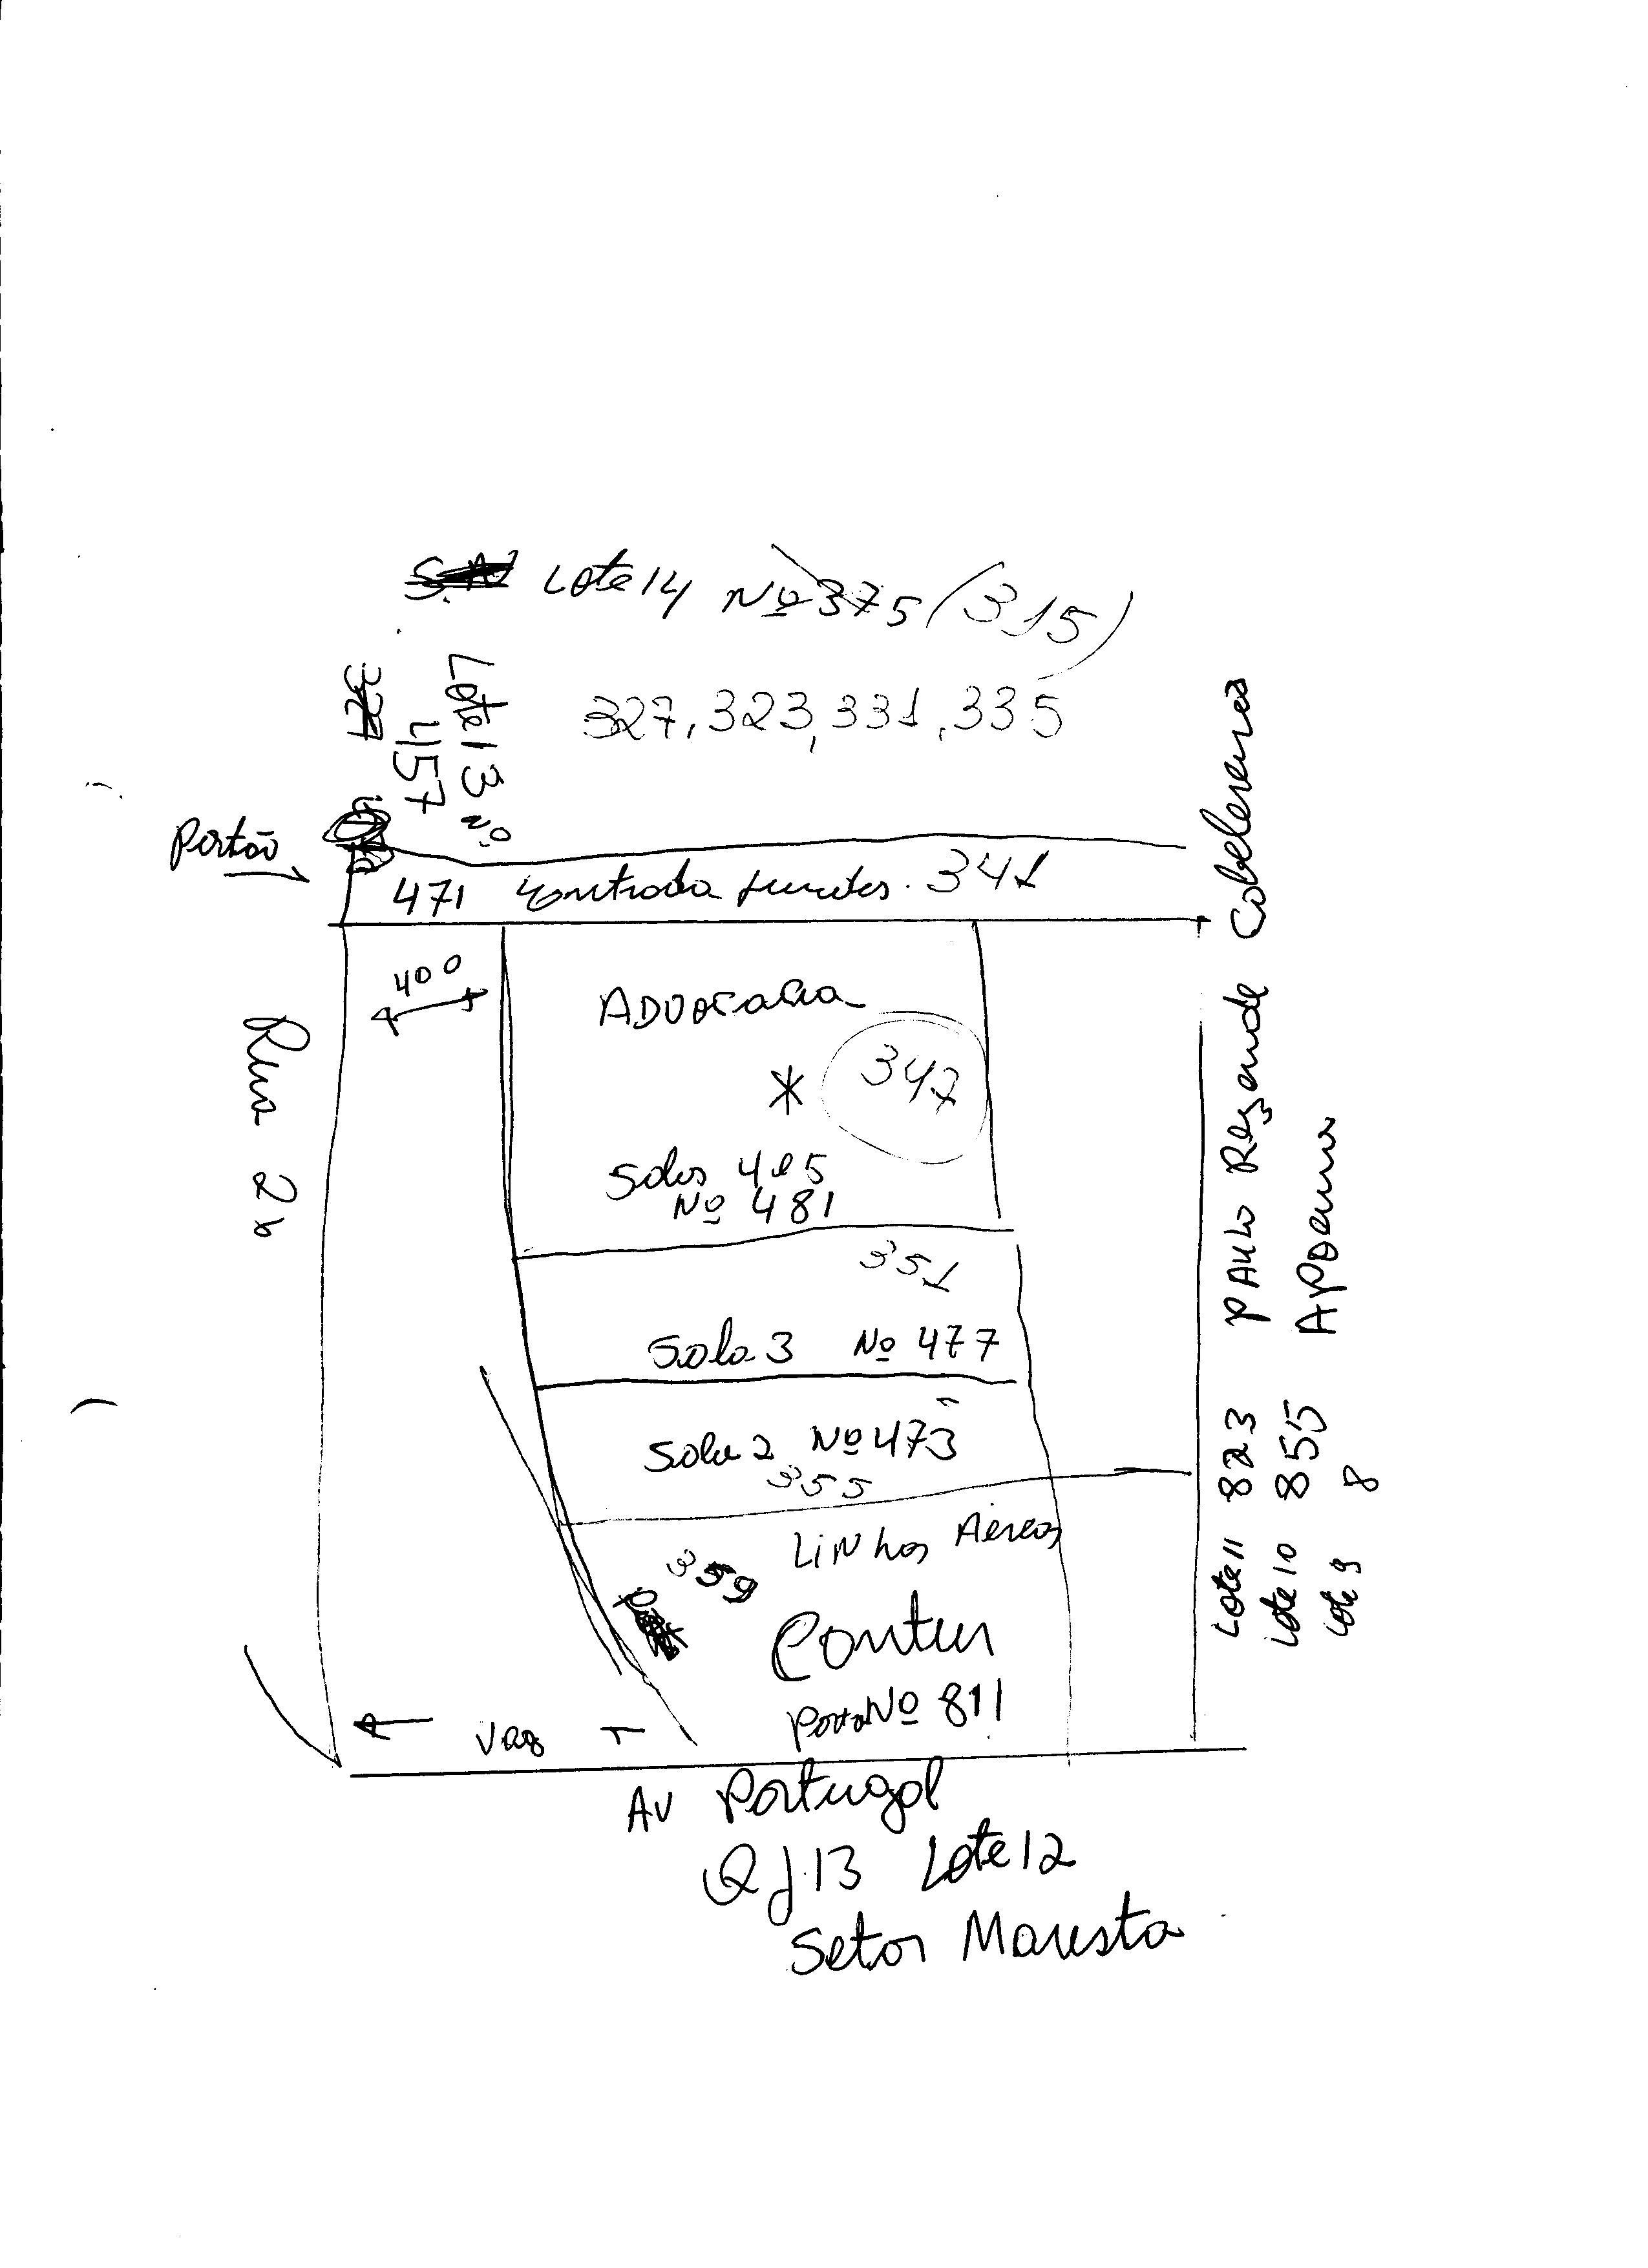 Lote 14 Nº 375 (315)
327, 323, 331, 335
327
457
Lote 13 Nº
Portão
471 Entrada 341
400
ADVOCACIA
* 347
Salas 4 e 5
Nº 481
351
Sala 3 Nº 477
Sala 2 Nº 473
355
Linhas Aéreas
359
Contur
Porta Nº 811
Vag
Rua 26
AV Portugal
Qd 13 Lote 12
Setor Marista
Lote 11 823 PAULO Rezende Cabeleireiros
Lote 10 855 Apoema
Lote 9 8